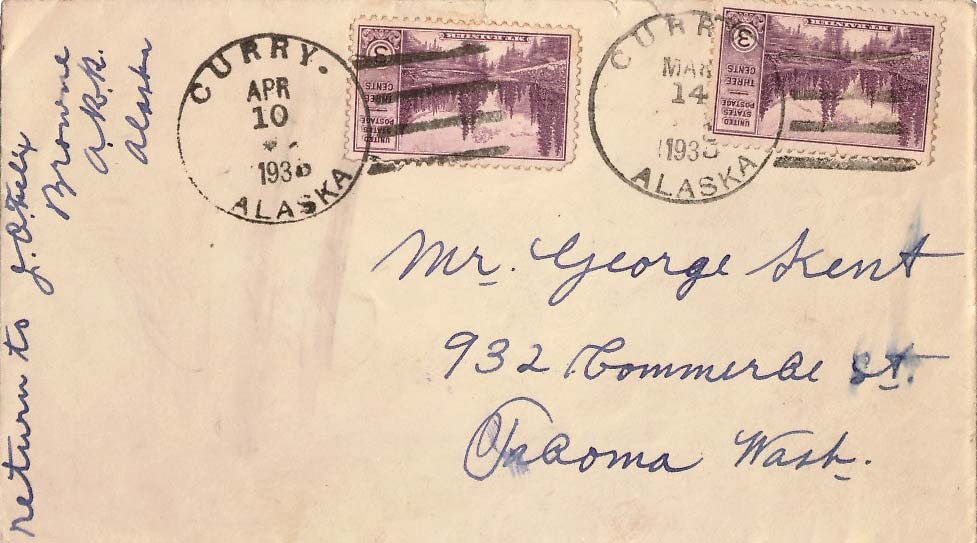 return to
Browne
A.R.R.
Alaska
CURRY.
APR
10
ALASKA
3
THREE
CENTS
UNITED
STATES
POSTAGE
CURRY
MAR
14
ALASKA
3
THREE
CENTS
UNITED
STATES
POSTAGE
Mt. RAINIER
Mr. George Kent
932 Commerce St.
Tacoma Wash.